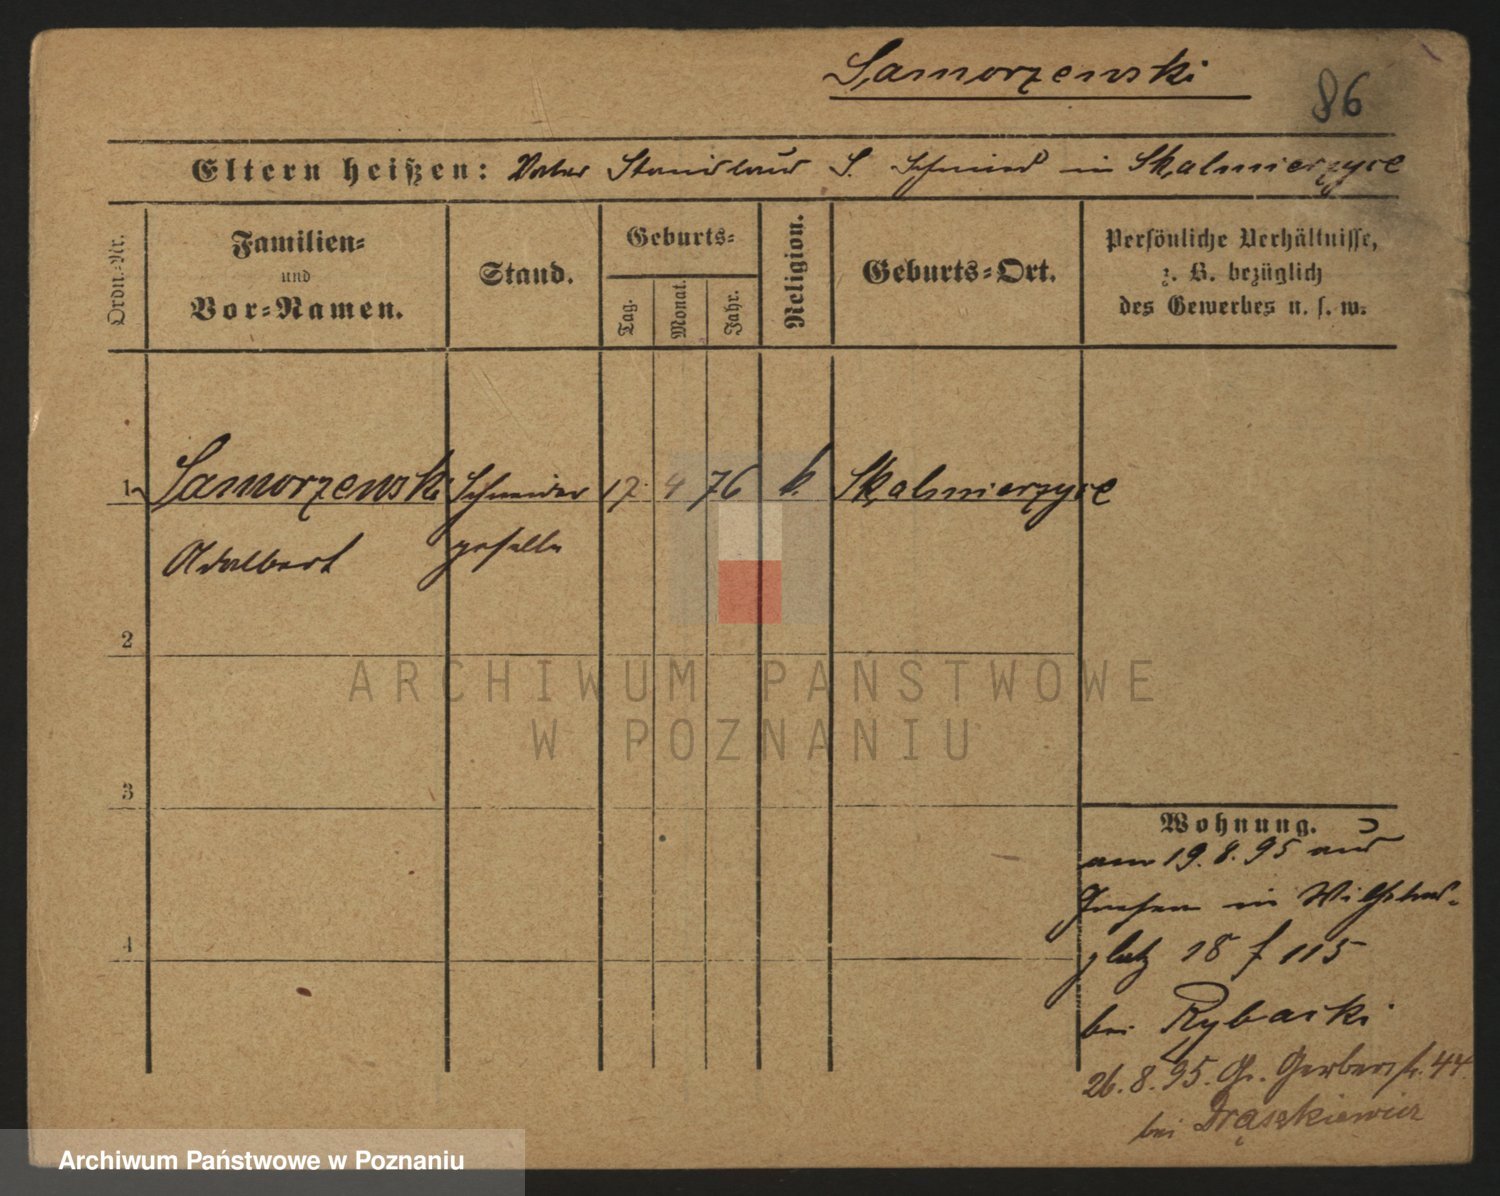 Samorzewski
86
Eltern heißen: Vater Stanislaus S. Schmied in Skalmierzyce
Ordn.-Nr.
Familien-
und
Vor-Namen.
Stand.
Geburts-
Tag.
Monat.
Jahr.
Religion.
Geburts-Ort.
Persönliche Verhältnisse,
z. B. bezüglich
des Gewerbes u. s. w.
1 Samorzewski Schneider 17. 4 76 k. Skalmierzyce
Adalbert geselle
2
3
4
Wohnung.
am 19.8.95 aus
Gnesen in Wilhelms-
platz 18 f 115
bei Rybacki
26.8.95. Gr. Gerberstr. 44.
bei Drąszkiewicz
ARCHIWUM PAŃSTWOWE
W POZNANIU
Archiwum Państwowe w Poznaniu